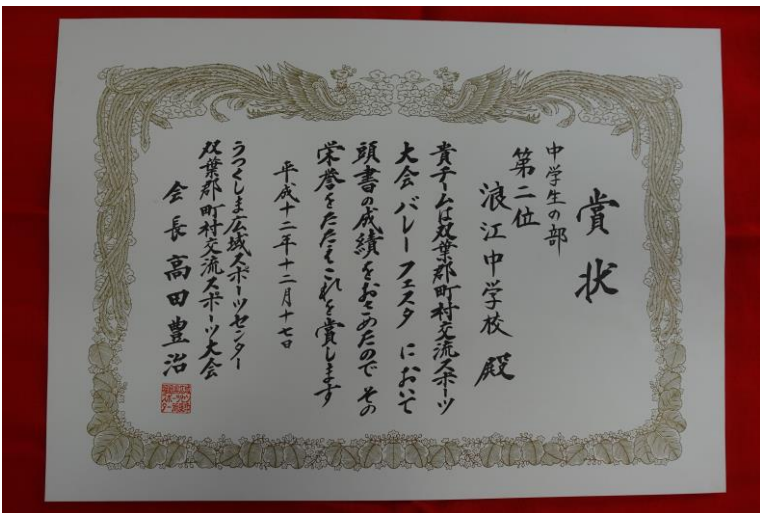 賞状
中学生の部
第二位
浪江中学校 殿
貴チームは双葉郡町村交流スポーツ
大会 バレーフェスタ において
頭書の成績をおさめたので その
栄誉をたたえこれを賞します
平成十二年十二月十七日
うつくしま広域スポーツセンター
双葉郡町村交流スポーツ大会
会長 高田豊治